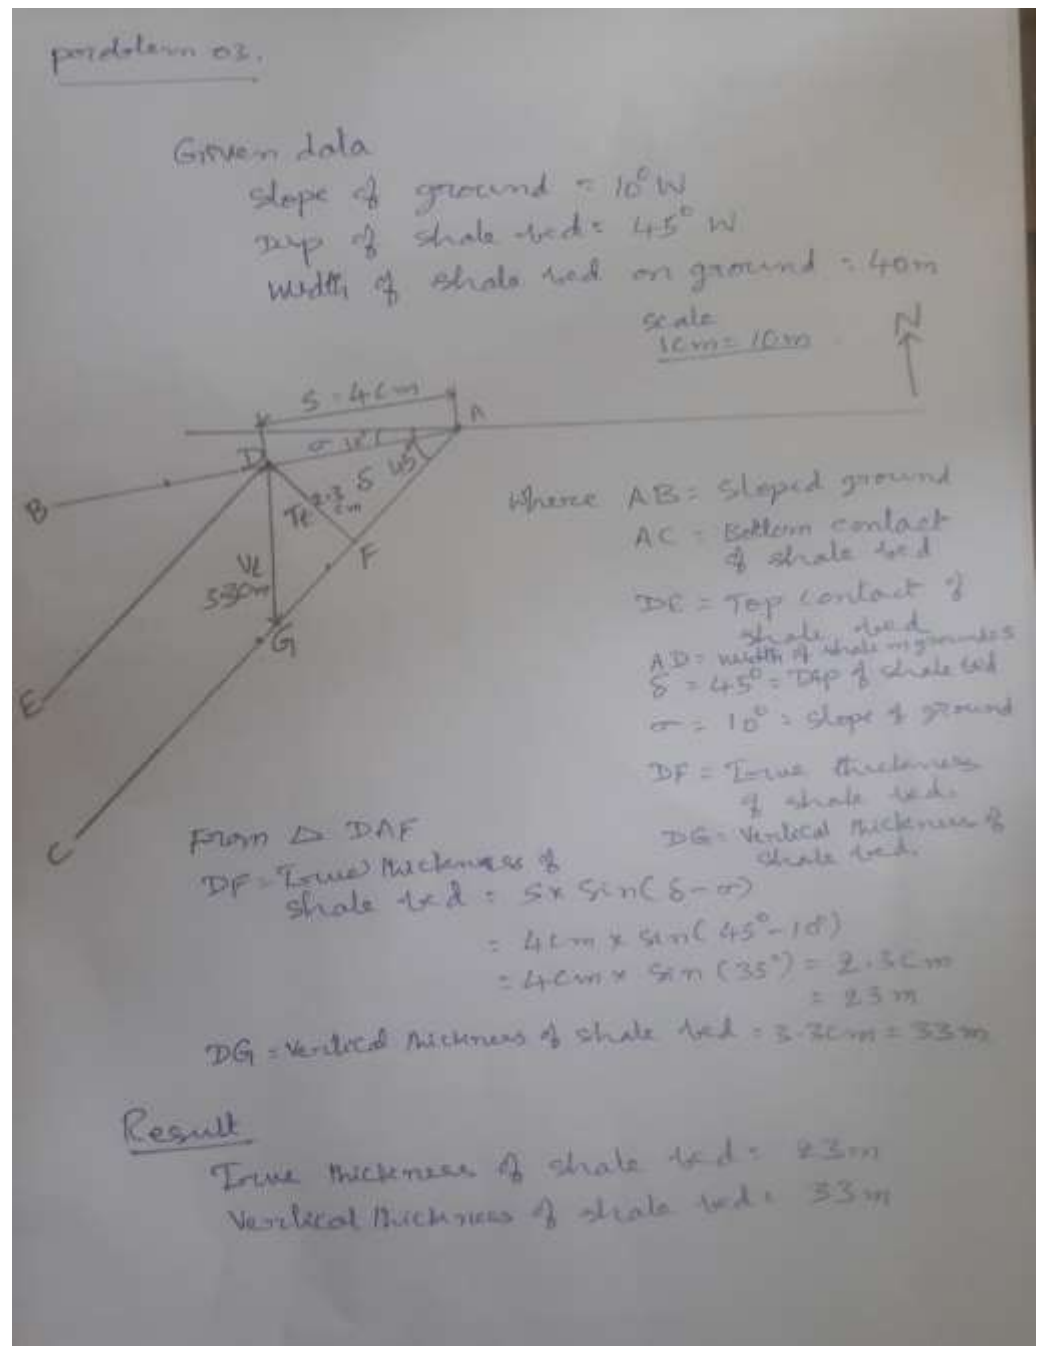 problem 03.
Given data
slope of ground = 10° W
Dip of shale bed = 45° W
width of shale bed on ground = 40m
scale
1cm = 10m
N
S = 4cm
A
D
σ 10°
45°
δ
B
2.3
cm
Tt
F
Vt
3.30m
G
E
C
Where AB = Sloped ground
AC = Bottom contact
of shale bed
DE = Top contact of
shale bed
AD = width of shale on ground = S
δ = 45° = Dip of shale bed
σ = 10° = slope of ground
DF = True thickness
of shale bed.
DG = Vertical thickness of
shale bed.
From △ DAF
DF = True thickness of
shale bed = S x Sin(δ-σ)
= 4cm x sin(45°-10°)
= 4cm x Sin(35°) = 2.3cm
= 23m
DG = Vertical thickness of shale bed = 3.3cm = 33m
Result
True thickness of shale bed = 23m
Vertical thickness of shale bed = 33m